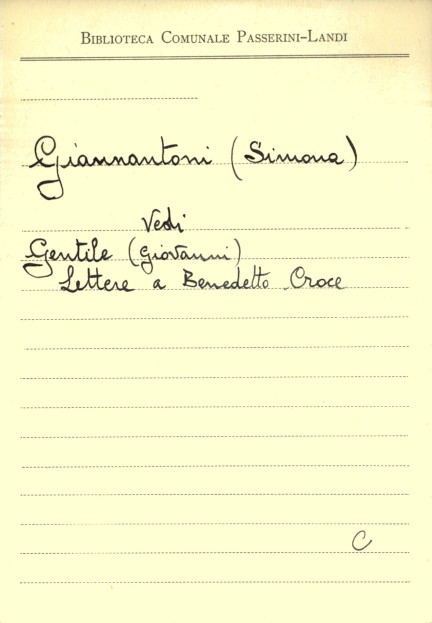 Biblioteca Comunale Passerini-Landi
Giannantoni (Simona)
Vedi
Gentile (Giovanni)
Lettere a Benedetto Croce
C